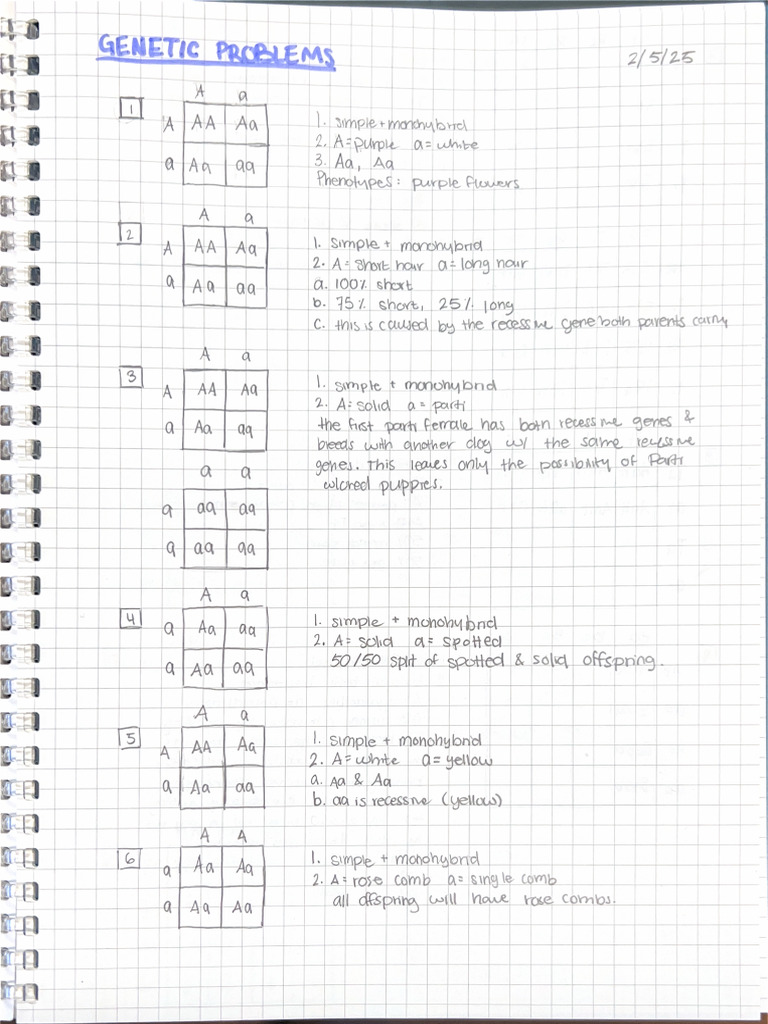 GENETIC PROBLEMS
2/5/25
1
A a
A AA Aa
a Aa aa
1. simple + monohybrid
2. A = purple a = white
3. Aa, Aa
Phenotypes: purple flowers
2
A a
A AA Aa
a Aa aa
1. simple + monohybrid
2. A = short hair a = long hair
a. 100% short
b. 75% short, 25% long
c. this is caused by the recessive gene both parents carry
3
A a
A AA Aa
a Aa aa
a a
a aa aa
a aa aa
1. simple + monohybrid
2. A = solid a = parti
the first parti female has both recessive genes &
breeds with another dog w/ the same recessive
genes. This leaves only the possibility of Parti
colored puppies.
4
A a
a Aa aa
a Aa aa
1. simple + monohybrid
2. A = solid a = spotted
50/50 split of spotted & solid offspring.
5
A a
A AA Aa
a Aa aa
1. simple + monohybrid
2. A = white a = yellow
a. Aa & Aa
b. aa is recessive (yellow)
6
A A
a Aa Aa
a Aa Aa
1. simple + monohybrid
2. A = rose comb a = single comb
all offspring will have rose combs.